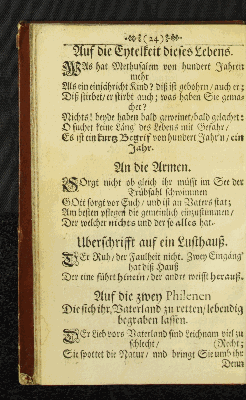 (24)
Auf die Eytelkeit dieses Lebens.
WAs hat Methusalem von hundert Jahren
mehr
Als ein einjähricht Kind? diß ist gebohrn / auch er;
Diß stirbet / er stirbt auch; was haben Sie gemachet?
Nichts! beyde haben bald geweinet / bald gelachet:
O suchet keine Läng' des Lebens mit Gefahr /
Es ist ein kurtz Begreif von hundert Jahr'n / ein
Jahr.
An die Armen.
SOrgt nicht ob gleich ihr müsst im See der
Trübsahl schwimmen
GOtt sorgt vor Euch / und ist an Vaters stat;
Am besten pflegen die gemeinlich einzustimmen /
Der welcher nichts und der so alles hat.
Uberschrifft auf ein Lusthauß.
DEr Ruh / der Faulheit nicht. Zwey Eingäng'
hat diß Hauß
Der eine führt hinein / der ander weisst herauß.
Auf die zwey Philenen
Die sich ihr Vaterland zu retten / lebendig
begraben lassen.
DEr Lieb vors Vaterland sind Leichnam viel zu
schlecht / (Recht;
Sie spottet die Natur / und bringt Sie umb ihr
Denn